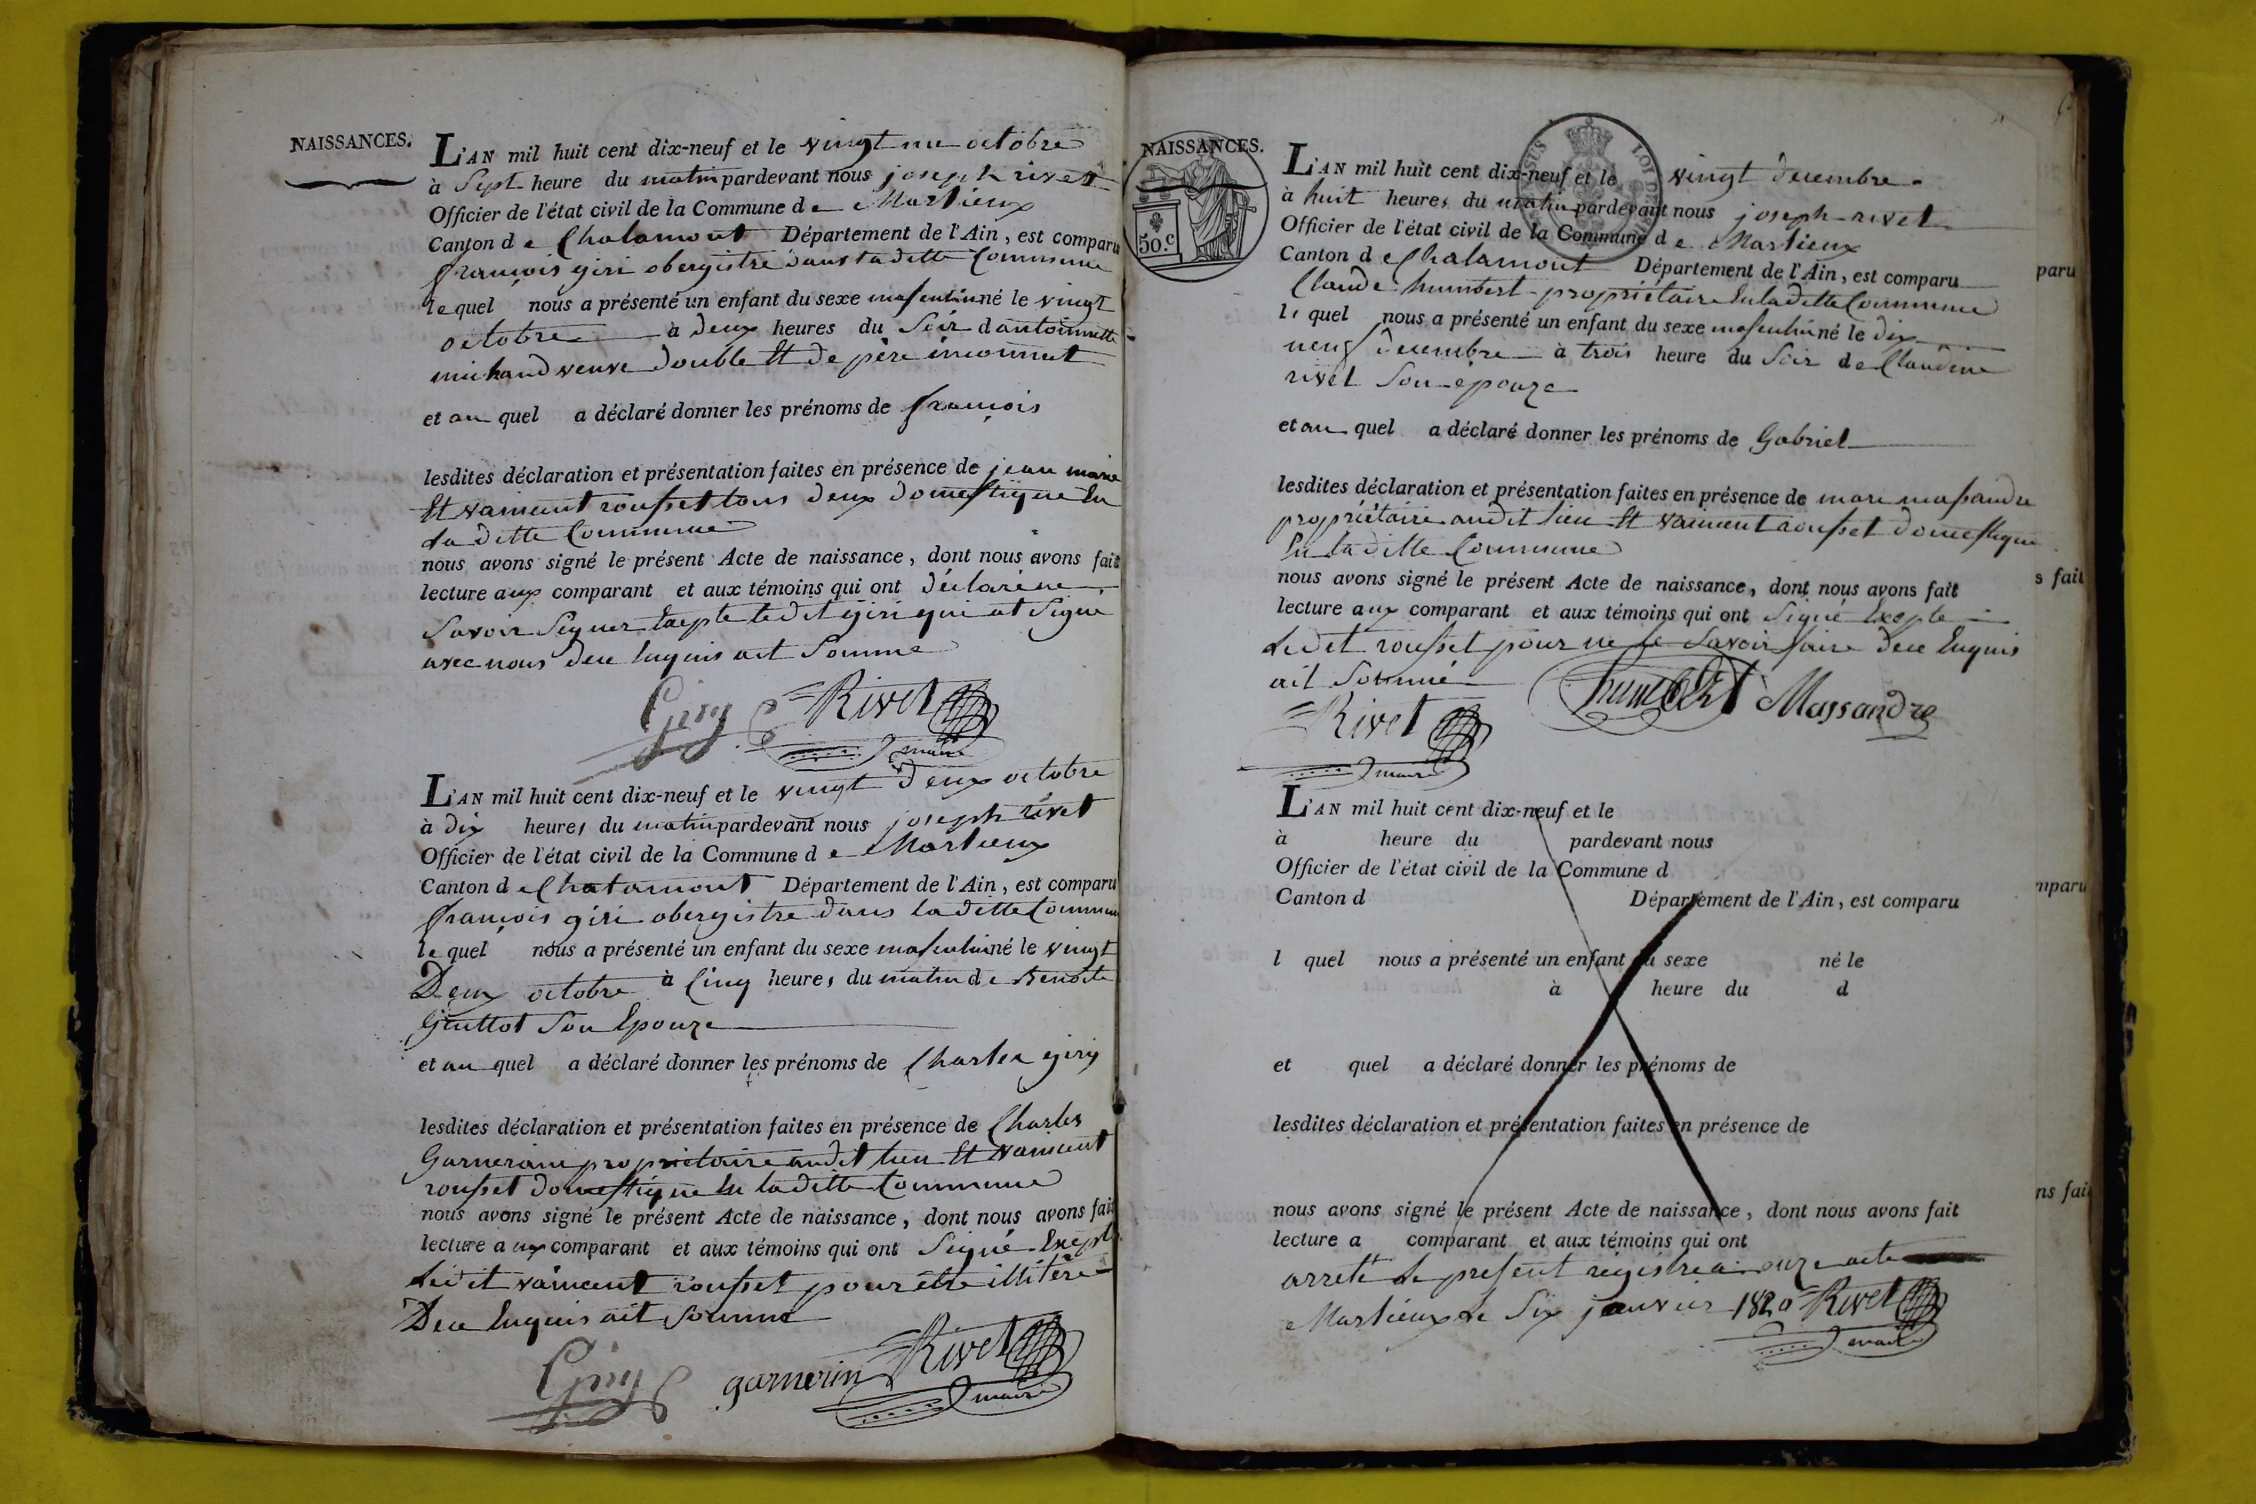 NAISSANCES.
L'AN mil huit cent dix-neuf et le vingt une octobre
à Sept heure du matin pardevant nous joseph rivet
Officier de l'état civil de la Commune d e Marlieux
Canton d e Chalamont Département de l'Ain, est comparu
françois giri obergistre dans la ditte Commune
le quel nous a présenté un enfant du sexe masculin né le vingt
octobre à deux heures du Soir d antoinette
michaud veuve double Et de père inconnut
et au quel a déclaré donner les prénoms de françois
lesdites déclaration et présentation faites en présence de jean marie
Et vaincent rousset tous deux domestique En
la ditte Commune
nous avons signé le présent Acte de naissance, dont nous avons fait
lecture aux comparant et aux témoins qui ont déclaré ne
Savoir Signer Exepte ledit giri qui at Signé
avec nous dece Enquis ait Sommé
Giry Rivet
maire
L'AN mil huit cent dix-neuf et le vingt deux octobre
à dix heures du matin pardevant nous joseph rivet
Officier de l'état civil de la Commune d e Marlieux
Canton d e Chalamont Département de l'Ain, est comparu
françois giri obergistre dans la ditte Commune
le quel nous a présenté un enfant du sexe masculin né le vingt
Deux octobre à Cinq heures du matin d e Benoite
Guttot Son Epouze
et au quel a déclaré donner les prénoms de Charles giry
lesdites déclaration et présentation faites en présence de Charles
Garnerain propriétaire audit lieu Et vaincent
rousset domestique En la ditte Commune
nous avons signé le présent Acte de naissance, dont nous avons fait
lecture a ux comparant et aux témoins qui ont Signé Exepte
Ledit vaincent rousset pour être illitère
Dece Enquis ait Sommé
Giry garnerin Rivet
maire
NAISSANCES.
50.c
L'AN mil huit cent dix-neuf et le vingt decembre
à huit heures du matin pardevant nous joseph rivet
Officier de l'état civil de la Commune d e Marlieux
Canton d e Chalamont Département de l'Ain, est comparu
Claude humbert propriétaire En la ditte Commune
le quel nous a présenté un enfant du sexe masculin né le dix
neuf decembre à trois heure du Soir d e Claudine
rivet Son épouze
et au quel a déclaré donner les prénoms de Gabriel
lesdites déclaration et présentation faites en présence de marc masandre
propriétaire audit lieu Et vaincent rousset domestique
En la ditte Commune
nous avons signé le présent Acte de naissance, dont nous avons fait
lecture aux comparant et aux témoins qui ont Signé Exepte
Ledit rousset pour ne le Savoir faire dece Enquis
ait Sommé
humbert Massandre
Rivet
maire
L'AN mil huit cent dix-neuf et le
à heure du pardevant nous
Officier de l'état civil de la Commune d
Canton d Département de l'Ain, est comparu
l quel nous a présenté un enfant du sexe né le
à heure du d
et quel a déclaré donner les prénoms de
lesdites déclaration et présentation faites en présence de
nous avons signé le présent Acte de naissance, dont nous avons fait
lecture a comparant et aux témoins qui ont
arreté Le present régistre a onze acte
Marlieux Le Six janvier 1820 Rivet
maire
paru
s fait
mparu
ns fait